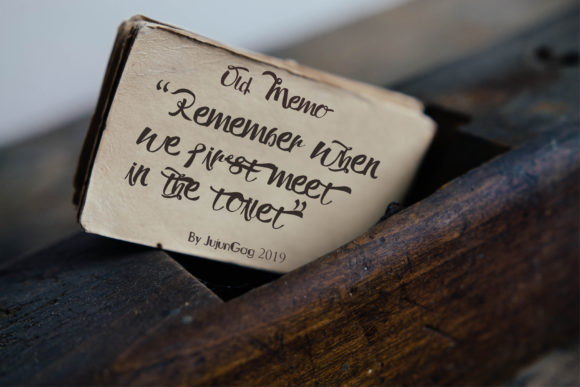 Old Memo
“Remember When
We first meet
in the toilet”
By JujunGog 2019